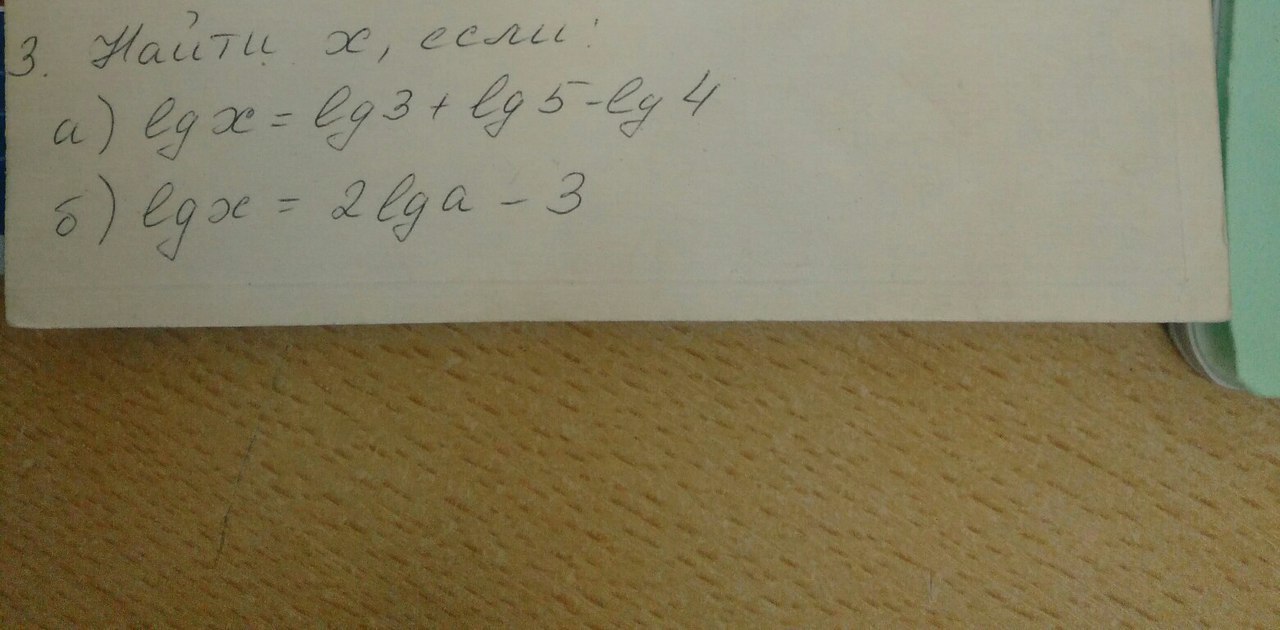 3. Найти x, если:
а) lg x = lg 3 + lg 5 - lg 4
б) lg x = 2 lg a - 3